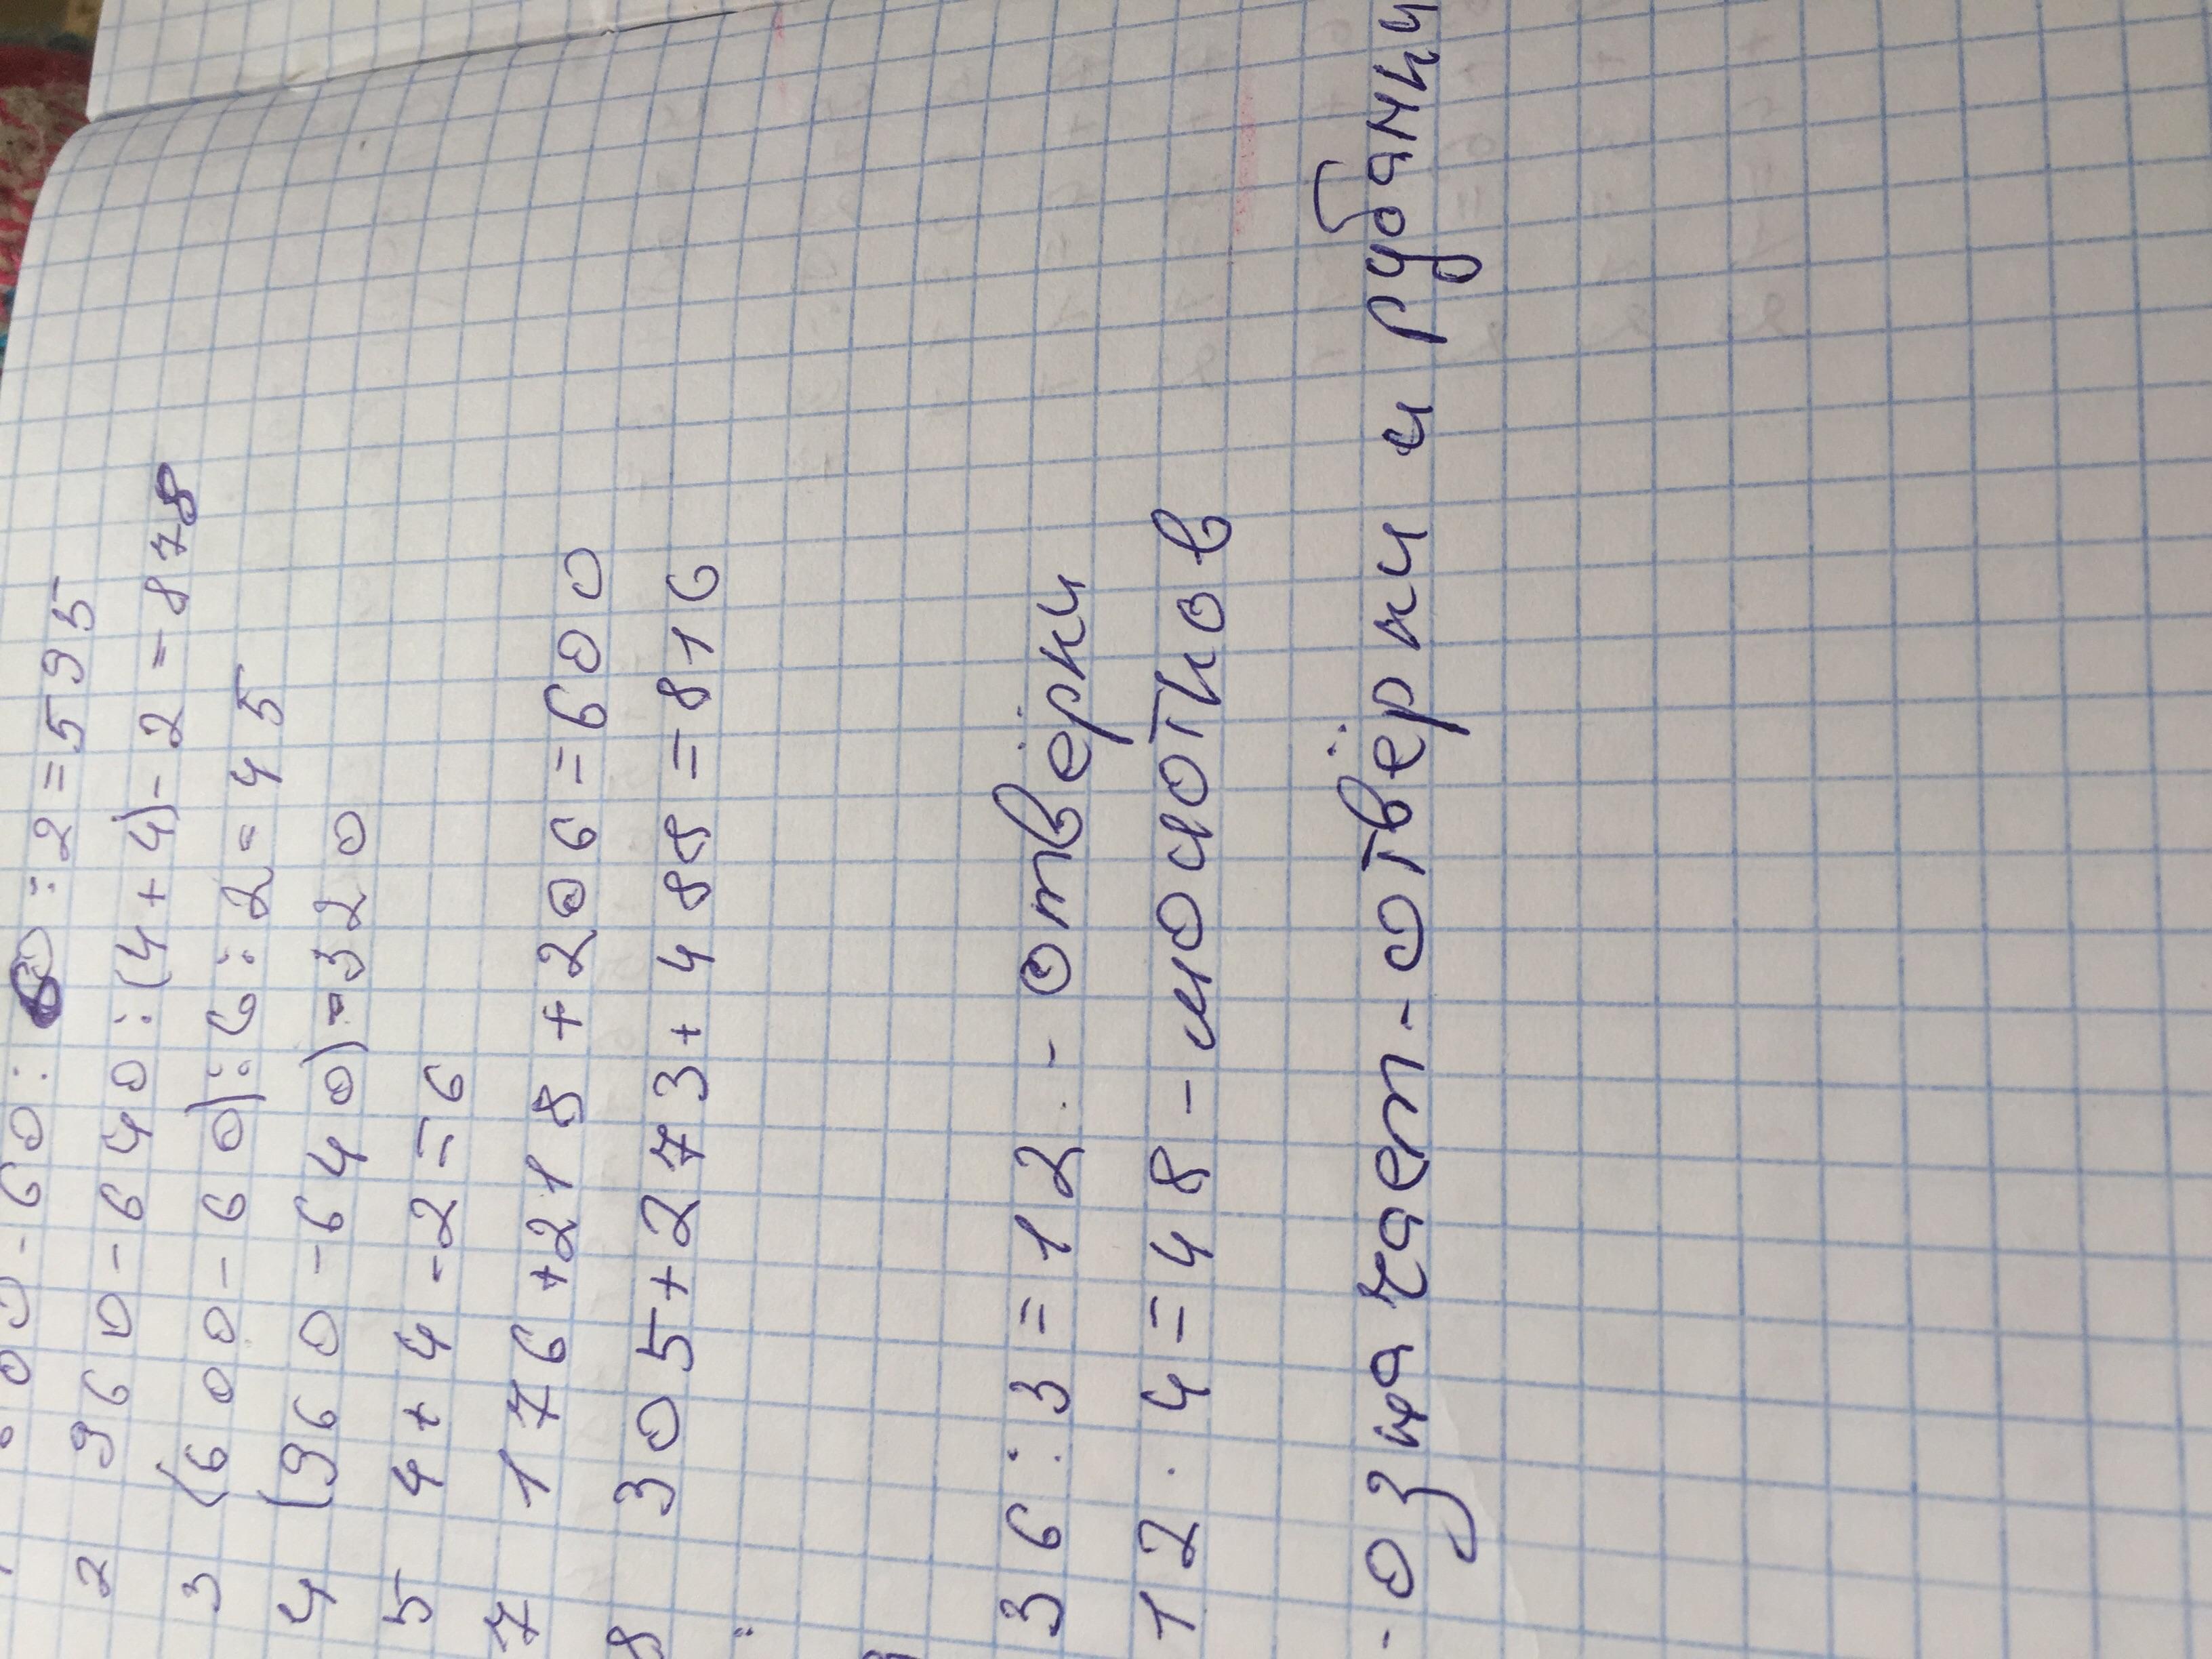 :2=595
2 960-640:(4+4)-2=878
3 (600-60):6:2=45
4 (960-640)=320
5 4+4-2=6
7 176+218+206=600
8 305+273+488=816
36:3=12 - отвёрки
12·4=48-молотков
-означает-отвёрки и рубанки